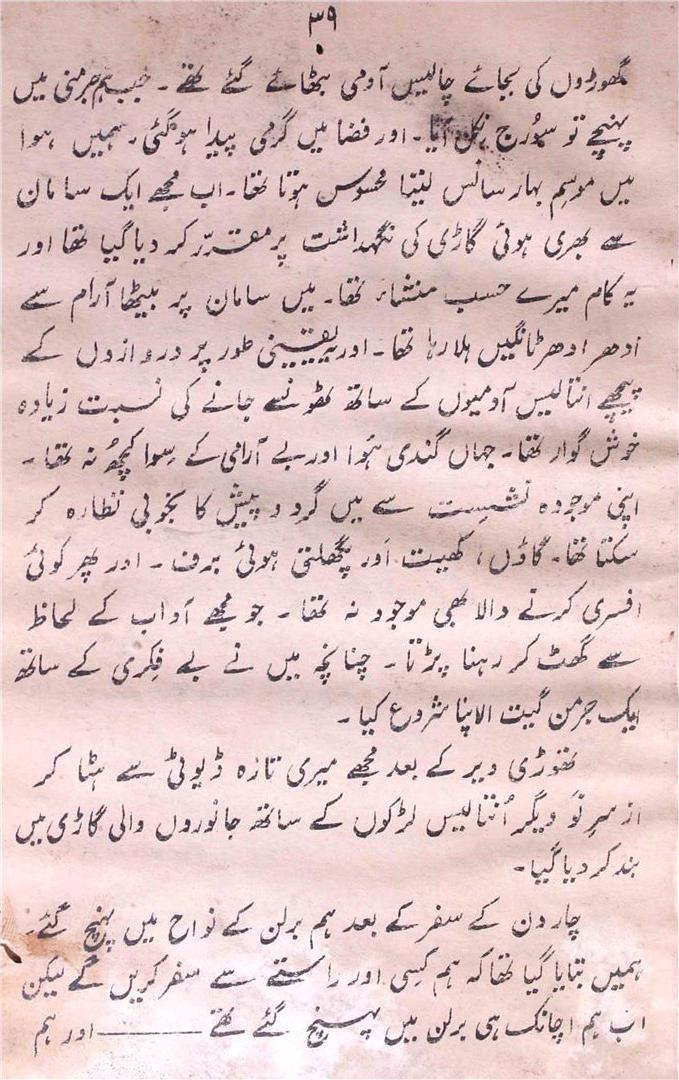 ۳۹
گھوڑوں کی بجائے چالیس آدمی بٹھائے گئے تھے ۔ جب ہم جرمنی میں
پہنچے تو سورج نکل آیا۔ اور فضا میں گرمی پیدا ہو گئی۔ ہمیں ہوا
میں موسم بہار سانس لیتا محسوس ہوتا تھا۔ اب مجھے ایک سامان
سے بھری ہوئی گاڑی کی نگہداشت پر مقرّر کر دیا گیا تھا اور
یہ کام میرے حسب منشاء تھا۔ میں سامان پر بیٹھا آرام سے
اُدھر ادھر ٹانگیں ہلا رہا تھا۔ اور یہ یقینی طور پر دروازوں کے
پیچھے انتالیس آدمیوں کے ساتھ ٹھونسے جانے کی نسبت زیادہ
خوش گوار تھا۔ جہاں گندی ہُوا اور بے آرامی کے سِوا کچھُ نہ تھا ۔
اپنی موجودہ نشست سے میں گرد و پیش کا بخوبی نظارہ کر
سکتا تھا۔ گاؤں، کھیت اَور پگھلتی ہوئی برف ۔ اور پھر کوئی
افسری کرنے والا بھی موجود نہ تھا ۔ جو مجھے آداب کے لحاظ
سے گھٹ کر رہنا پڑتا ۔ چنانچہ میں نے بے فِکری کے ساتھ
ایک جرمن گیت الاپنا شروع کیا ۔
تھوڑی دیر کے بعد مجھے میری تازہ ڈیوٹی سے ہٹا کر
از سرِ نَو دیگر اُنتالیس لڑکوں کے ساتھ جانوروں والی گاڑی میں
بند کر دیا گیا۔
چار دن کے سفر کے بعد ہم برلن کے نواح میں پہنچ گئے۔
ہمیں بتایا گیا تھا کہ ہم کِسی اور راستے سے سفر کریں گے لیکن
اب ہم اچانک ہی برلن میں پہنچ گئے تھے ——— اور ہم